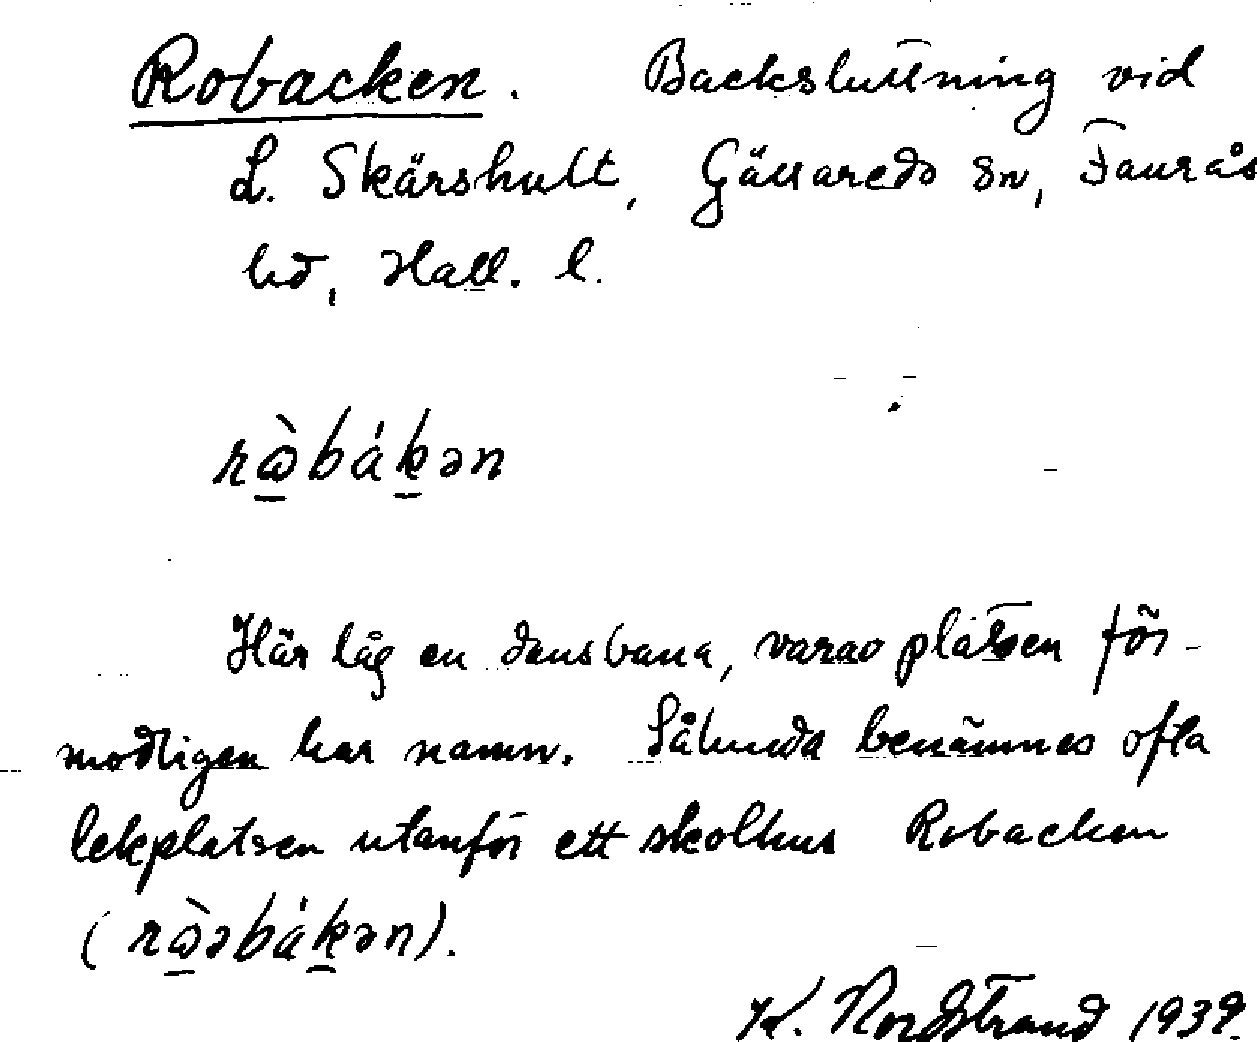 Robacken. Backsluttning vid
L. Skärshult, Gällareds sn, Faurås
hd, Hall. l.
rɷ̀bák̠ən
Här låg en dansbana, varav platsen för-
modligen har namn. Sålunda benämnes ofta
lekplatsen utanför ett skolhus Robacken
(rɷ̀əbák̠ən).
K. Nordstrand 1939.